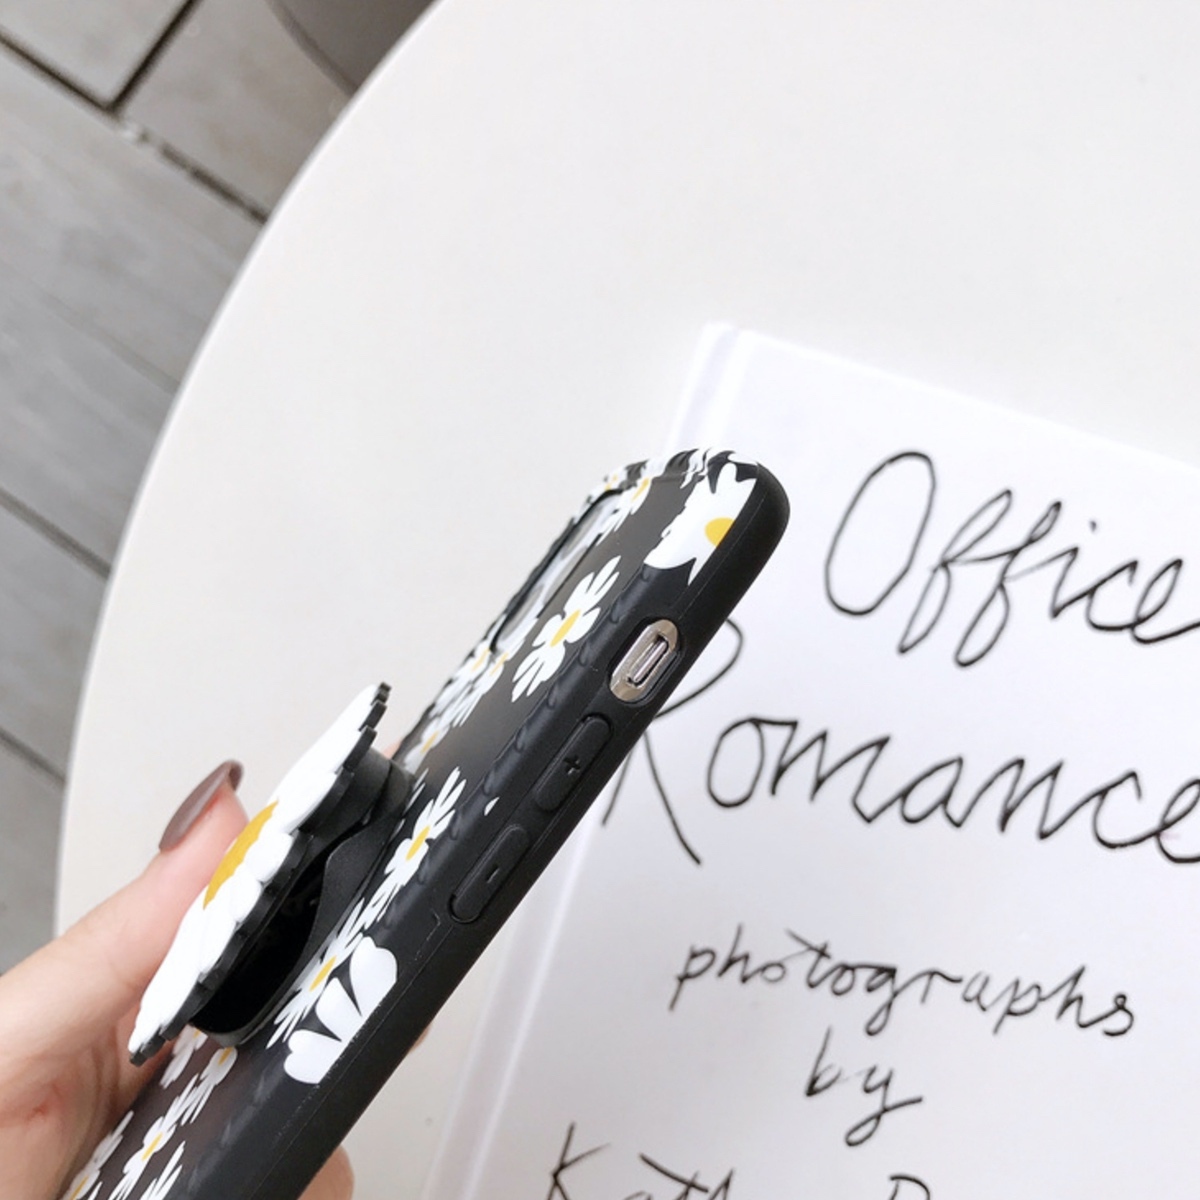 Office
Romance
photographs
by
+
-